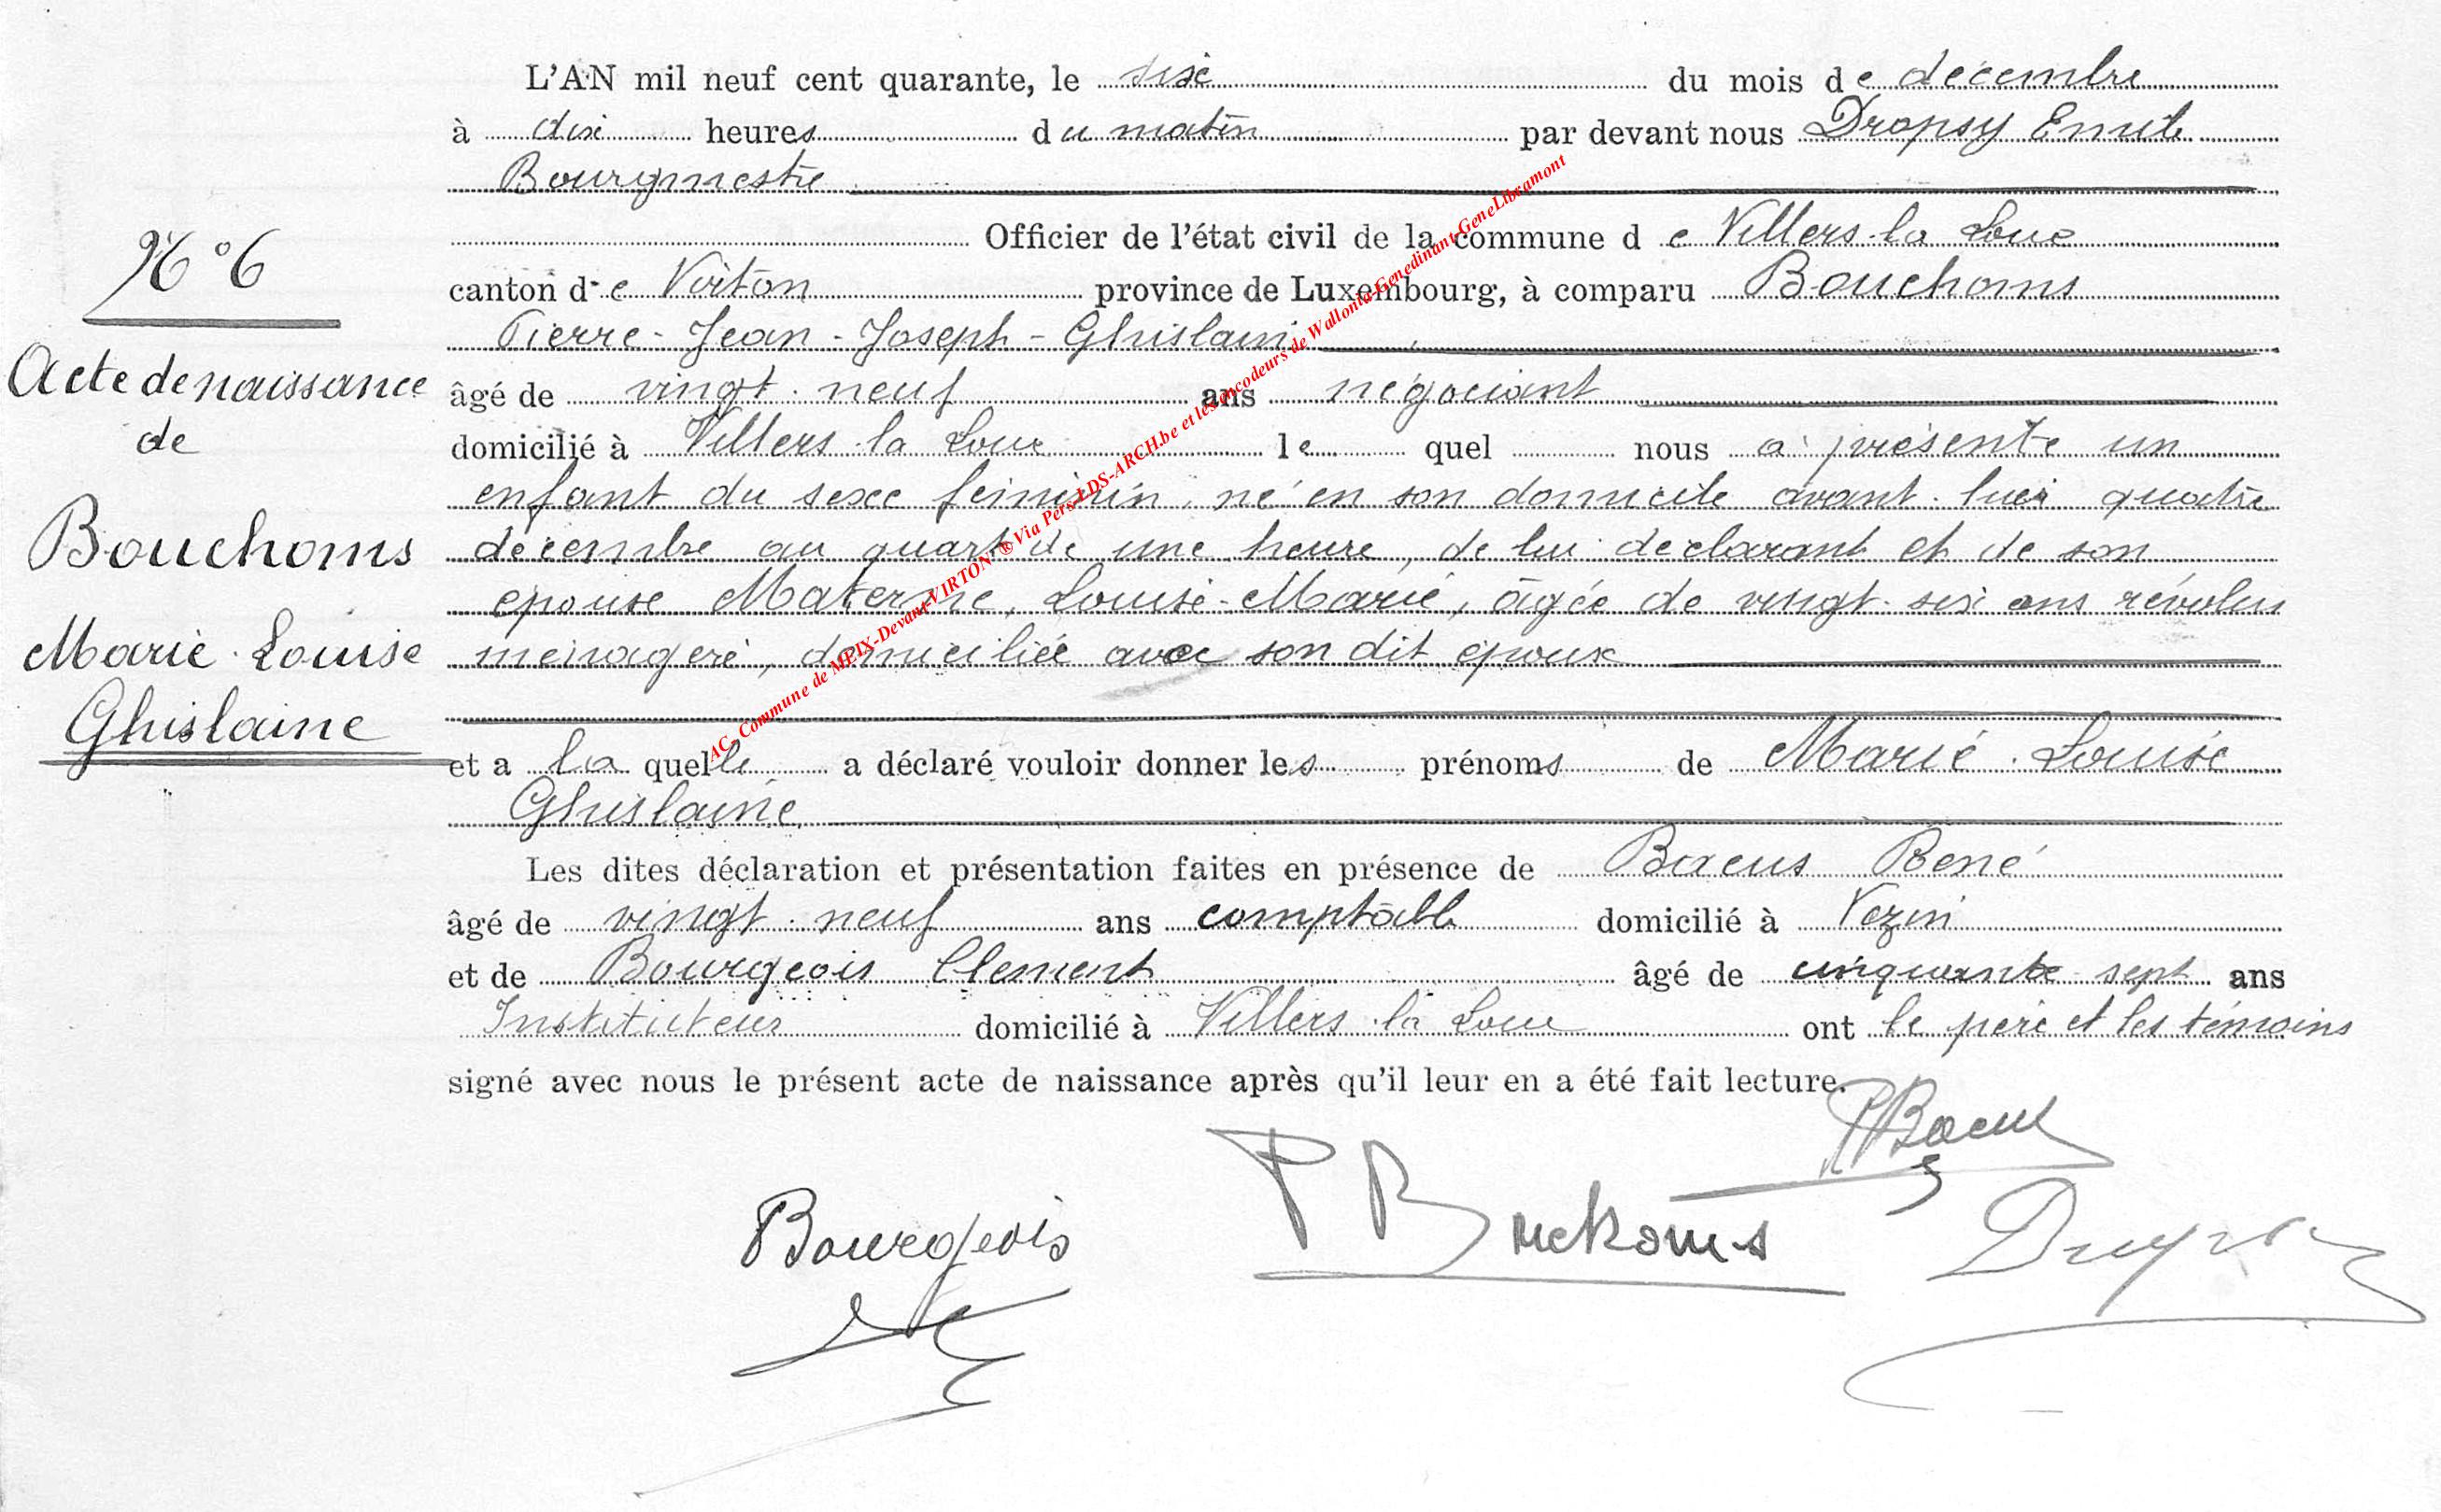 L'AN mil neuf cent quarante, le six du mois de décembre
à dix heures du matin par devant nous Dropsy Emile
Bourgmestre
Officier de l'état civil de la commune de Villers-la-Loue
canton de Virton province de Luxembourg, à comparu Bouchoms
Pierre-Jean-Joseph-Ghislain
âgé de vingt-neuf ans négociant
domicilié à Villers-la-Loue lequel nous a présenté un
enfant du sexe féminin, né en son domicile avant-hier quatre
décembre au quart de une heure, de lui déclarant et de son
épouse Materne, Louise-Marie, âgée de vingt-six ans révolus
ménagère, domiciliée avec son dit époux
et a laquelle a déclaré vouloir donner les prénoms de Marie-Louise
Ghislaine
Les dites déclaration et présentation faites en présence de Baeus René
âgé de vingt-neuf ans comptable domicilié à Vezin
et de Bourgeois Clement âgé de cinquante-sept ans
Instituteur domicilié à Villers-la-Loue ont le père et les témoins
signé avec nous le présent acte de naissance après qu'il leur en a été fait lecture.
N°6
Acte de naissance
de
Bouchoms
Marie-Louise
Ghislaine
RBaeus
Bourgeois
P Bouchoms
Dropsy
AC. Commune de MPIX-Devant-VIRTON-® Via Pers-LDS-ARCH.be et les encodeurs de Wallonia-Genedinant-GeneLibramont